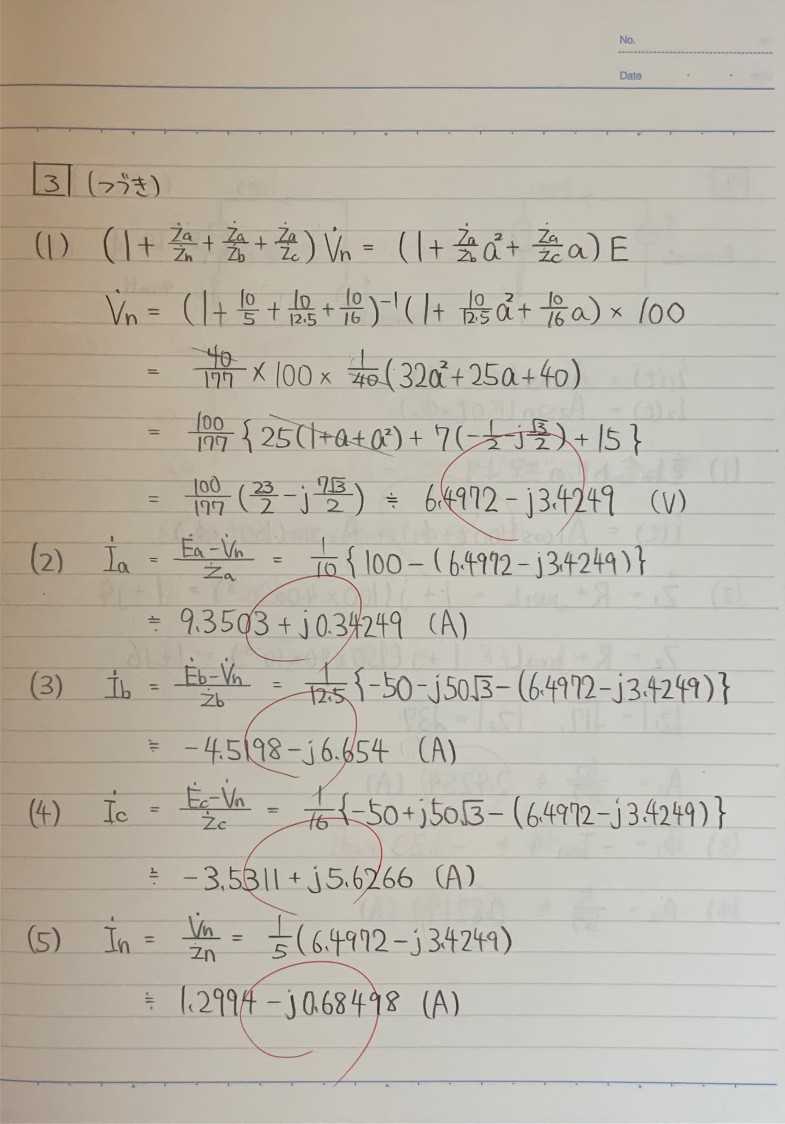 No.
Date
3 (つづき)
(1) (1 + Ża/Żn + Ża/Żb + Ża/Żc) V̇n = (1 + Ża/Żb a² + Ża/Żc a) E
V̇n = (1 + 10/5 + 10/12.5 + 10/16)⁻¹ (1 + 10/12.5 a² + 10/16 a) × 100
= 40/177 × 100 × 1/40 (32a² + 25a + 40)
= 100/177 { 25(1+a+a²) + 7(-1/2 - j√3/2) + 15 }
= 100/177 (23/2 - j 7√3/2) ≒ 6.4972 - j3.4249 (V)
(2) İa = (Ėa - V̇n)/Ża = 1/10 {100 - (6.4972 - j3.4249)}
≒ 9.3503 + j0.34249 (A)
(3) İb = (Ėb - V̇n)/Żb = 1/12.5 {-50 - j50√3 - (6.4972 - j3.4249)}
≒ -4.5198 - j6.654 (A)
(4) İc = (Ėc - V̇n)/Żc = 1/16 {-50 + j50√3 - (6.4972 - j3.4249)}
≒ -3.5311 + j5.6266 (A)
(5) İn = V̇n/Żn = 1/5 (6.4972 - j3.4249)
≒ 1.2994 - j0.68498 (A)